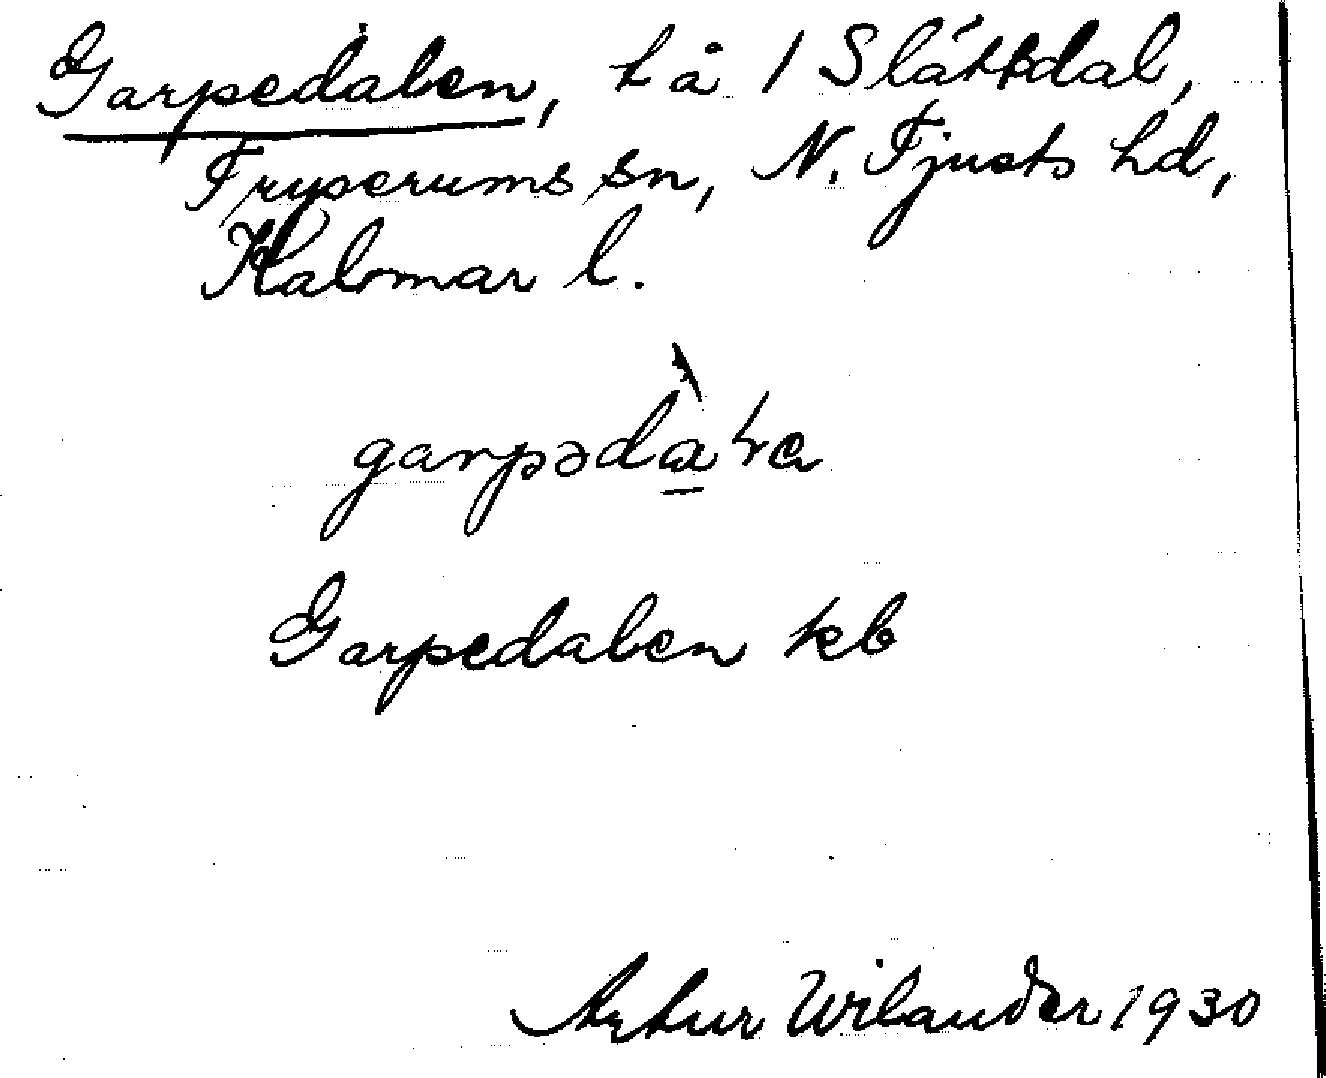 Garpedalen, t å 1 Slättdal,
Tryserums sn, N. Tjusts hd,
Kalmar l.
garpədàɫa
Garpedalen kb
Artur Wilander 1930